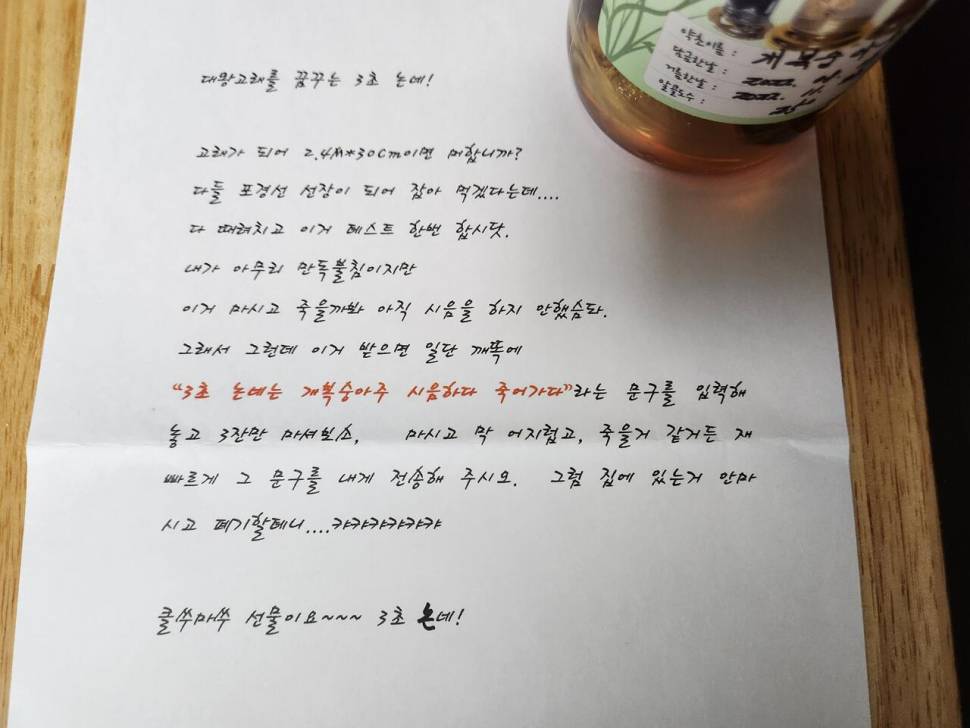 약초이름 : 개복숭아
담금한날 : 2022.
거름한날 : 2022. 11.
알콜도수 :
대왕고래를 꿈꾸는 3초 논네!
고래가 되어 2.4M*30Cm이면 머합니까?
다들 포경선 선장이 되어 잡아 먹겠다는데....
다 때려치고 이거 테스트 한번 합시닷.
내가 아무리 만독불침이지만
이거 마시고 죽을까봐 아직 시음을 하지 안했슴돠.
그래서 그런데 이거 받으면 일단 깨똑에
“3초 논네는 개복숭아주 시음하다 죽어가다”라는 문구를 입력해
놓고 3잔만 마셔보소, 마시고 막 어지럽고, 죽을거 같거든 재
빠르게 그 문구를 내게 전송해 주시오. 그럼 집에 있는거 안마
시고 폐기할테니....캬캬캬캬캬캬
클쑤마쑤 선물이요~~~ 3초 논네!